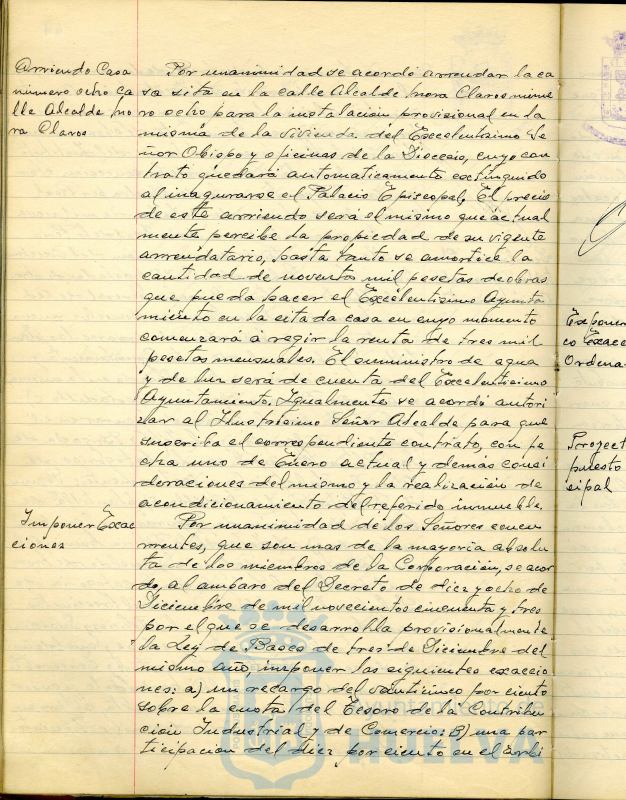 Arriendo Casa
número ocho Ca
lle Alcalde Mo
ra Claros
Por unanimidad se acordó arrendar la ca
sa sita en la calle Alcalde Mora Claros núme
ro ocho para la instalación provisional en la
misma de la vivienda del Excelentísimo Se
ñor Obispo y oficinas de la Diócesis, cuyo con
trato quedará automáticamente extinguido
al inagurarse el Palacio Episcopal. El precio
de este arriendo será el mismo que actual
mente percibe la propiedad de su vigente
arrendatario, hasta tanto se amortice la
cantidad de noventa mil pesetas de obras
que pueda hacer el Excelentísimo Ayunta
miento en la citada casa en cuyo momento
comenzará á regir la renta de tres mil
pesetas mensuales. El suministro de agua
y de luz será de cuenta del Excelentísimo
Ayuntamiento. Igualmente se acordó autori
zar al Ilustrísimo Señor Alcalde para que
suscriba el correspondiente contrato, con fe
cha uno de Enero actual y demás consi
deraciones del mismo y la realización de
acondicionamiento del referido inmueble.
Imponer Exac
ciones
Por unanimidad de los Señores concu
rrentes, que son mas de la mayoría absolu
ta de los miembros de la Corporación, se acor
do, al amparo del Decreto de diez y ocho de
Diciembre de mil novecientos cincuenta y tres
por el que se desarrolla provisionalmente
la Ley de Bases de tres de Diciembre del
mismo año, imponer las siguientes exaccio
nes: a) un recargo del veinticinco por ciento
sobre la cuota del Tesoro de la Contribu
ción Industrial y de Comercio: B) una par
ticipación del diez por ciento en el Arbi
Exponer
co Exacc
Ordena
Proyect
puesto
cipal
Ayuntamiento de
HUELVA